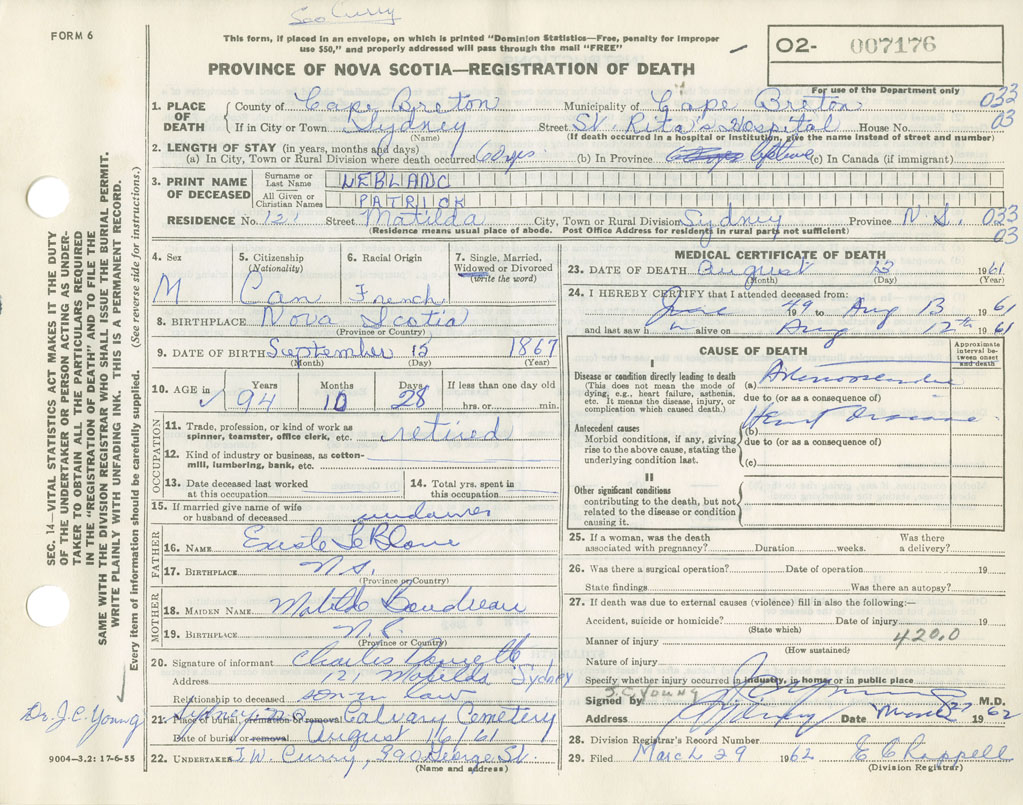 See Curry
FORM 6
This form, if placed in an envelope, on which is printed "Dominion Statistics—Free, penalty for improper
use $50," and properly addressed will pass through the mail "FREE"
PROVINCE OF NOVA SCOTIA—REGISTRATION OF DEATH
02- 007176
For use of the Department only
033
03
1. PLACE OF DEATH County of Cape Breton Municipality of Cape Breton
If in City or Town Sydney (Name) Street St. Rita's Hospital House No.
(If death occurred in a hospital or institution, give the name instead of street and number)
2. LENGTH OF STAY (in years, months and days)
(a) In City, Town or Rural Division where death occurred 60 yrs. (b) In Province (c) In Canada (if immigrant)
3. PRINT NAME OF DECEASED Surname or Last Name LEBLANC
All Given or Christian Names PATRICK
RESIDENCE No. 121 Street Matilda City, Town or Rural Division Sydney Province N.S. 033
03
(Residence means usual place of abode. Post Office Address for residents in rural parts not sufficient)
4. Sex 5. Citizenship (Nationality) 6. Racial Origin 7. Single, Married, Widowed or Divorced (write the word)
M Can French
8. BIRTHPLACE Nova Scotia
(Province or Country)
9. DATE OF BIRTH September 15 1867
(Month) (Day) (Year)
10. AGE in Years Months Days If less than one day old
94 10 28 hrs. or min.
OCCUPATION
11. Trade, profession, or kind of work as spinner, teamster, office clerk, etc. retired
12. Kind of industry or business, as cotton-mill, lumbering, bank, etc.
13. Date deceased last worked at this occupation
14. Total yrs. spent in this occupation
15. If married give name of wife or husband of deceased
FATHER
16. NAME LeBlanc
17. BIRTHPLACE N.S.
(Province or Country)
MOTHER
18. MAIDEN NAME Matilda Boudreau
19. BIRTHPLACE N.S.
(Province or Country)
20. Signature of informant Charles
Address 121 Matilda Sydney
Relationship to deceased son in law
21. Place of burial, cremation or removal Calvary Cemetery
Date of burial or removal August 16/61
22. UNDERTAKER T.W. Curry, 390 George St.
(Name and address)
MEDICAL CERTIFICATE OF DEATH
23. DATE OF DEATH August 13 1961
(Month) (Day) (Year)
24. I HEREBY CERTIFY that I attended deceased from:
June 1949 to Aug 13 1961
and last saw h m alive on Aug 12th 1961
CAUSE OF DEATH
Approximate interval between onset and death
I
Disease or condition directly leading to death
(This does not mean the mode of dying, e.g., heart failure, asthenia, etc. It means the disease, injury, or complication which caused death.)
(a)
due to (or as a consequence of)
Antecedent causes
Morbid conditions, if any, giving rise to the above cause, stating the underlying condition last.
(b) Heart Disease
due to (or as a consequence of)
(c)
II
Other significant conditions
contributing to the death, but not related to the disease or condition causing it.
25. If a woman, was the death associated with pregnancy? Duration weeks. Was there a delivery?
26. Was there a surgical operation? Date of operation 19
State findings Was there an autopsy?
27. If death was due to external causes (violence) fill in also the following:—
Accident, suicide or homicide? Date of injury 19
(State which)
Manner of injury 420.0
(How sustained)
Nature of injury
Specify whether injury occurred in industry, in home, or in public place
J.C. YOUNG
Signed by M.D.
Address Sydney Date March 27 1962
28. Division Registrar's Record Number
29. Filed March 29 1962 E C Rappell
(Division Registrar)
SEC. 14—VITAL STATISTICS ACT MAKES IT THE DUTY
OF THE UNDERTAKER OR PERSON ACTING AS UNDER-
TAKER TO OBTAIN ALL THE PARTICULARS REQUIRED
IN THE "REGISTRATION OF DEATH" AND TO FILE THE
SAME WITH THE DIVISION REGISTRAR WHO SHALL ISSUE THE BURIAL PERMIT.
WRITE PLAINLY WITH UNFADING INK. THIS IS A PERMANENT RECORD.
Every item of information should be carefully supplied. (See reverse side for instructions.)
Dr. J.C. Young
9004-3.2: 17-6-55